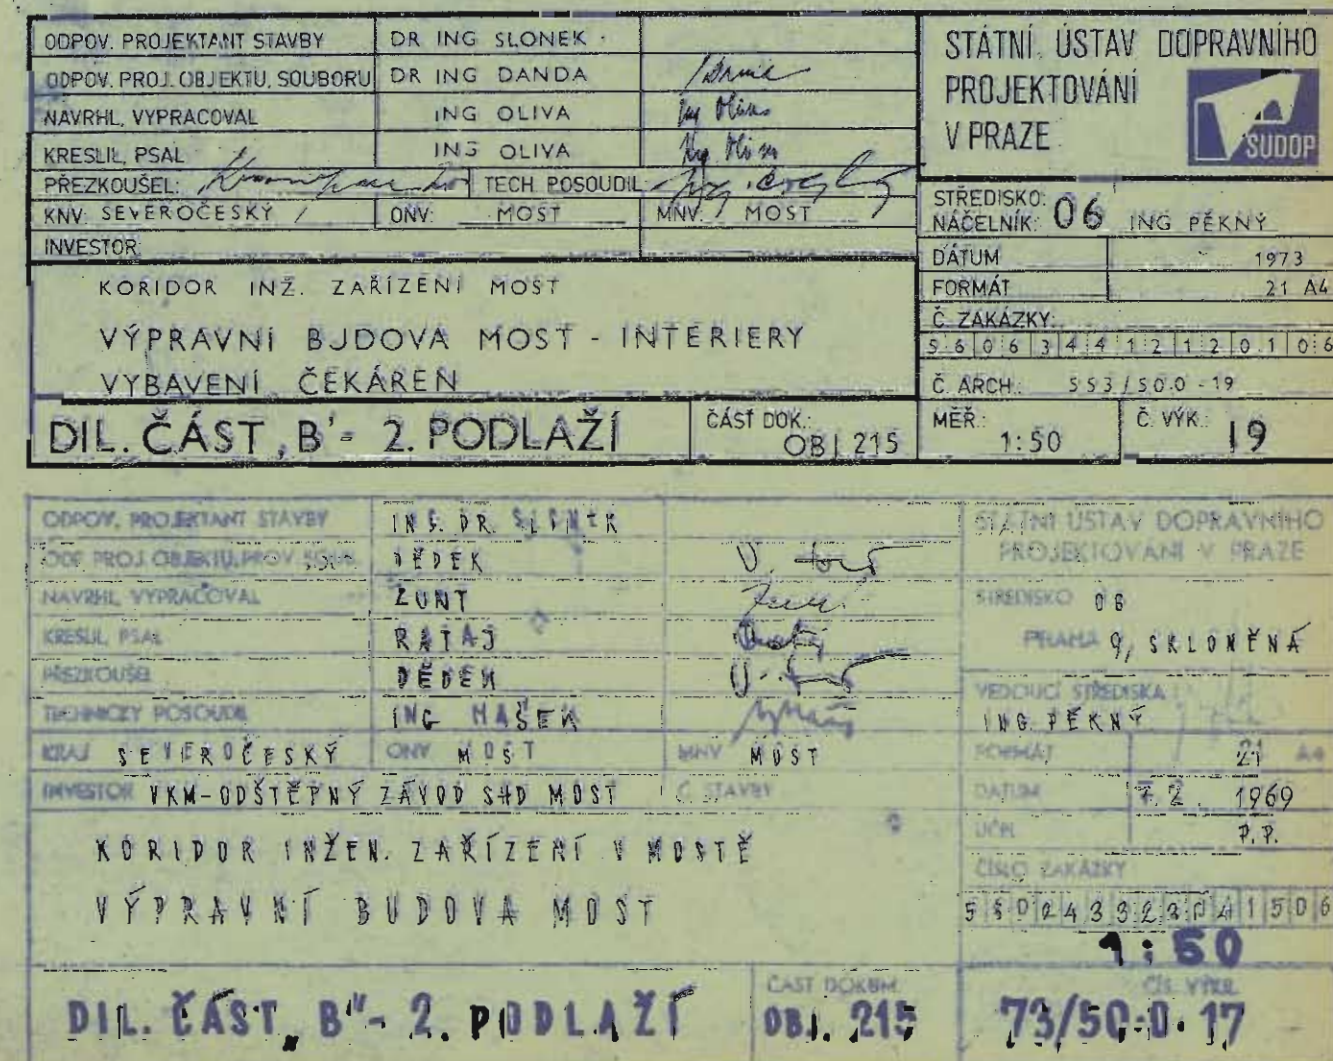 ODPOV. PROJEKTANT STAVBY DR ING SLONEK
ODPOV. PROJ. OBJEKTU, SOUBORU DR ING DANDA
NAVRHL, VYPRACOVAL ING OLIVA Ing Oliva
KRESLIL, PSAL ING OLIVA Ing Oliva
PŘEZKOUŠEL: TECH. POSOUDIL
KNV: SEVEROČESKÝ ONV: MOST MNV: MOST
INVESTOR:
KORIDOR INŽ. ZAŘÍZENÍ MOST
VÝPRAVNÍ BUDOVA MOST - INTERIERY
VYBAVENÍ ČEKÁREN
DIL. ČÁST „B'- 2. PODLAŽÍ
ČÁST DOK.:
OBJ 215
STÁTNÍ ÚSTAV DOPRAVNÍHO
PROJEKTOVÁNÍ
V PRAZE
SUDOP
STŘEDISKO:
NÁČELNÍK: 06 ING PĚKNÝ
DÁTUM 1973
FORMÁT 21 A4
Č. ZAKÁZKY:
5606344121201 06
Č. ARCH.: 553/50.0-19
MĚŘ.: 1:50
Č. VÝK.: 19
ODPOV. PROJEKTANT STAVBY ING. DR. SLONEK
DĚDEK
NAVRHL, VYPRACOVAL ZUNT
KRESLIL, PSAL RATAJ
PŘEZKOUŠEL DĚDEK
TECHNICKY POSOUDIL ING MAŠEK
KRAJ SEVEROČESKÝ ONV MOST MNV MOST
INVESTOR VKM-ODŠTĚPNÝ ZÁVOD SHD MOST Č. STAVBY
KORIDOR INŽEN. ZAŘÍZENÍ V MOSTĚ
VÝPRAVNÍ BUDOVA MOST
DIL. ČÁST „B"- 2. PODLAŽÍ
ČÁST DOKUM.
OBJ. 215
STÁTNÍ ÚSTAV DOPRAVNÍHO
PROJEKTOVÁNÍ V PRAZE
STŘEDISKO 06
PRAHA 9, SKLONĚNÁ
VEDOUCÍ STŘEDISKA
ING. PĚKNÝ
FORMÁT 21 A4
DATUM 7.2. 1969
ÚČEL P.P.
ČÍSLO ZAKÁZKY
1:50
ČÍS. VÝKR.
73/50.0.17